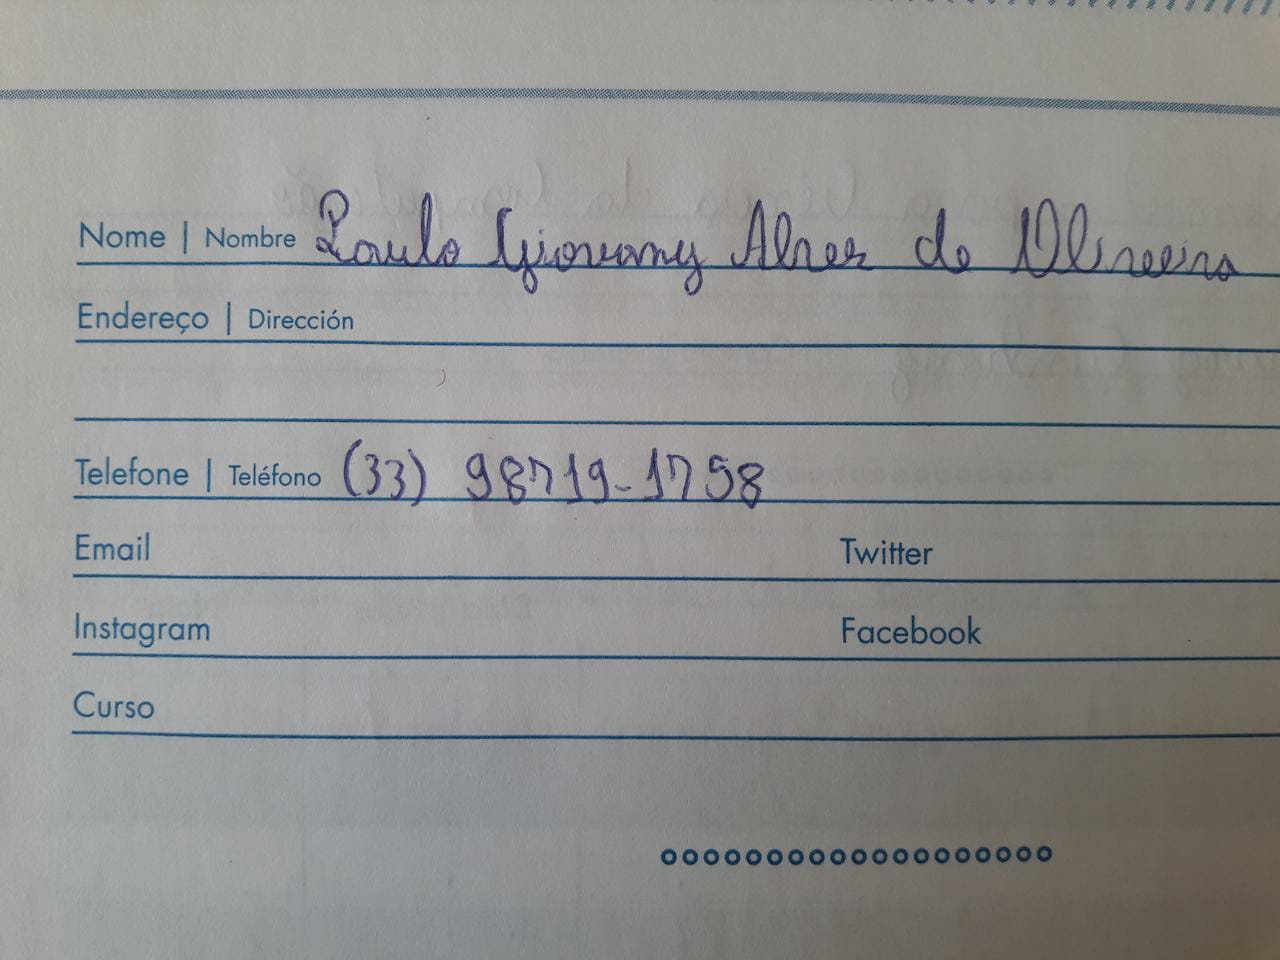 Nome | Nombre Paulo Giovany Alves de Oliveira
Endereço | Dirección
Telefone | Teléfono (33) 98719-1758
Email Twitter
Instagram Facebook
Curso